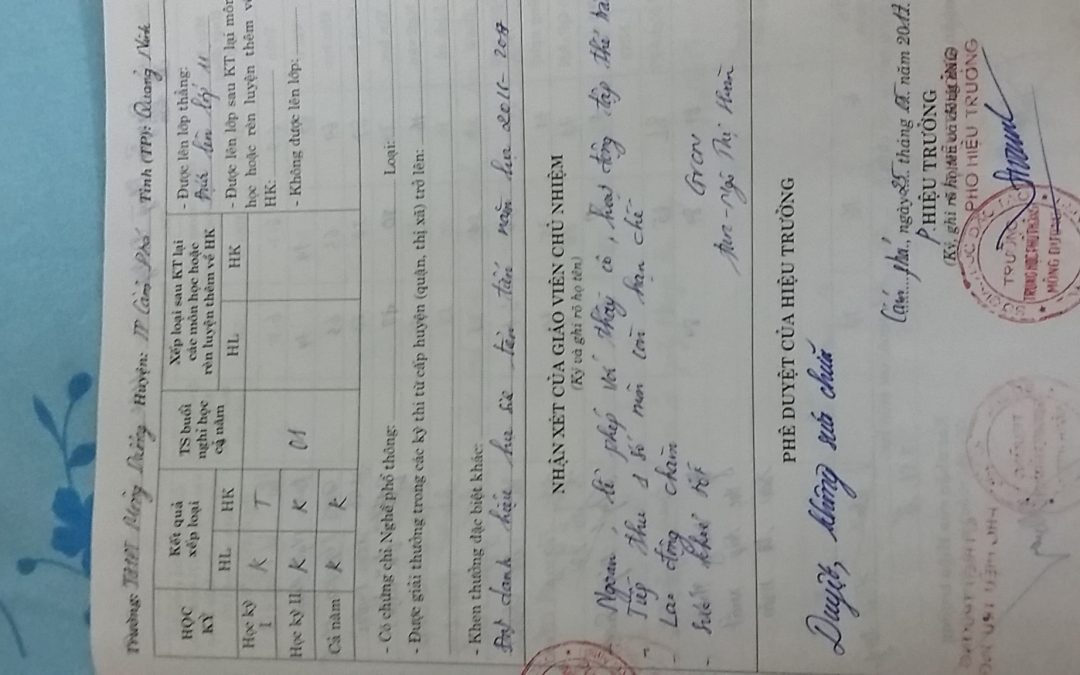 Trường: THPT Mông Dương Huyện: TP Cẩm Phả Tỉnh (TP): Quảng Ninh
HỌC KỲ
Kết quả xếp loại
HL
HK
TS buổi nghỉ học cả năm
Xếp loại sau KT lại các môn học hoặc rèn luyện thêm về HK
HL
HK
Học kỳ I
K
T
Học kỳ II
K
K
01
Cả năm
K
K
- Được lên lớp thẳng:
Được lên lớp 11
- Được lên lớp sau KT lại môn
học hoặc rèn luyện thêm về
HK:
- Không được lên lớp:
- Có chứng chỉ Nghề phổ thông: Loại:
- Được giải thưởng trong các kỳ thi từ cấp huyện (quận, thị xã) trở lên:
- Khen thưởng đặc biệt khác:
Đạt danh hiệu học sinh tiên tiến năm học 2016-2017
NHẬN XÉT CỦA GIÁO VIÊN CHỦ NHIỆM
(Ký và ghi rõ họ tên)
- Ngoan lễ phép với thầy cô, hoạt động tập thể
- Tiếp thu 1 số môn còn hạn chế
- Lao động chăm
- Sức khoẻ tốt
GVCN
Ngô Thị
PHÊ DUYỆT CỦA HIỆU TRƯỞNG
Duyệt, không sửa chữa
Cẩm Phả, ngày 25 tháng năm 2017
P. HIỆU TRƯỞNG
(Ký, ghi rõ họ tên và đóng dấu)
PHÓ HIỆU TRƯỞNG
TRƯỜNG
TRUNG HỌC PHỔ THÔNG
MÔNG DƯƠNG